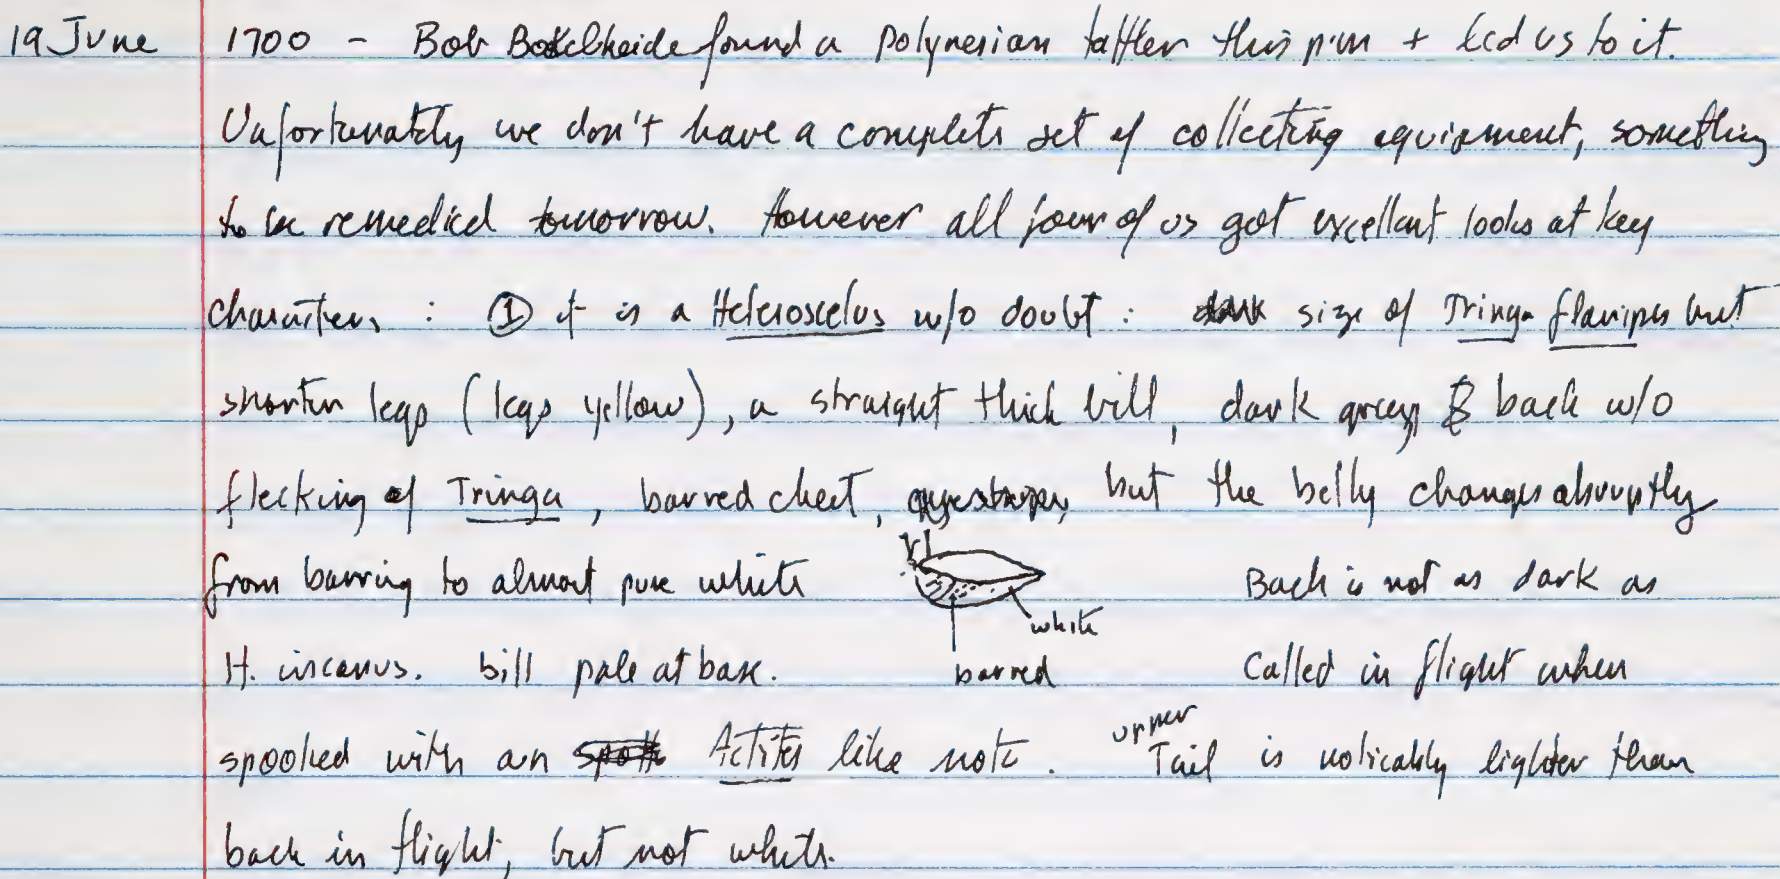 19 June 1700 - Bob Boekelheide found a Polynesian tattler this p.m + led us to it.
Unfortunately we don't have a complete set of collecting equipment, something
to be remedied tomorrow. However all four of us got excellent looks at key
characters : ① it is a Heteroscelus w/o doubt : size of Tringa flavipes but
shorter legs (legs yellow), a straight thick bill, dark grey back w/o
flecking of Tringa, barred chest, but the belly changes abruptly
from barring to almost pure white Back is not as dark as
white
H. incanus. bill pale at base. barred Called in flight when
spooked with an Actitis like note. upper Tail is noticably lighter than
back in flight, but not white.